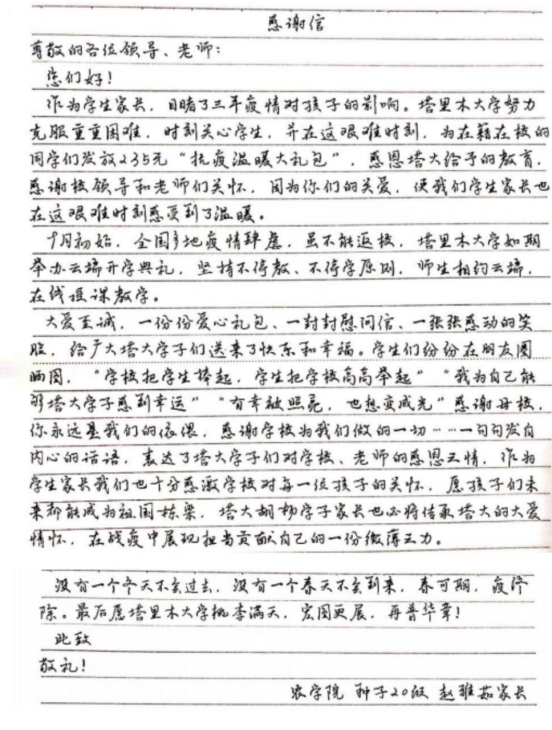 感谢信
尊敬的各位领导、老师：
您们好！
作为学生家长，目睹了三年疫情对孩子的影响。塔里木大学努力
克服重重困难，时刻关心学生，并在这艰难时刻，为在籍在校的
同学们发放235元“抗疫温暖大礼包”，感恩塔大给予的教育，
感谢校领导和老师们关怀，因为你们的关爱，使我们学生家长也
在这艰难时刻感受到了温暖。
9月初始，全国多地疫情肆虐，虽不能返校，塔里木大学如期
举办云端开学典礼，坚持不停教、不停学原则，师生相约云端，
在线授课教学。
大爱至诚，一份份爱心礼包、一封封慰问信、一张张感动的笑
脸，给广大塔大学子们送来了快乐和幸福。学生们纷纷在朋友圈
晒图，“学校把学生捧起，学生把学校高高举起”“我为自己能
够塔大学子感到幸运”“有幸被照亮，也想变成光”感谢母校，
你永远是我们的依偎，感谢学校为我们做的一切……一句句发自
内心的话语，表达了塔大学子们对学校、老师的感恩之情，作为
学生家长我们也十分感激学校对每一位孩子的关怀，愿孩子们未
来都能成为祖国栋梁，塔大胡杨学子家长也必将传承塔大的大爱
情怀，在战疫中展现担当贡献自己的一份微薄之力。
没有一个冬天不会过去，没有一个春天不会到来，春可期，疫终
除。最后愿塔里木大学桃李满天，宏图更展，再普华章！
此致
敬礼！
农学院 种子20级 赵雅茹家长